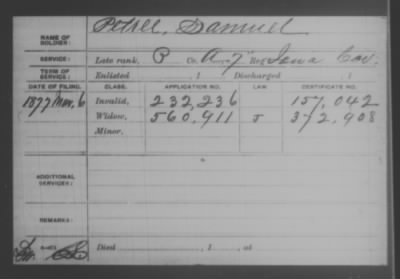 NAME OF SOLDIER: Potsll, Samuel
SERVICE: Late rank, P Co. A, 7" Reg Iowa Cav;
TERM OF SERVICE: Enlisted , 1 Discharged , 1
DATE OF FILING. CLASS. APPLICATION NO. LAW. CERTIFICATE NO.
1877 Nov, 6 Invalid, 232,236 157,042
Widow, 560,911 J 372,908
Minor,
ADDITIONAL SERVICES:
REMARKS:
Died , 1 , at